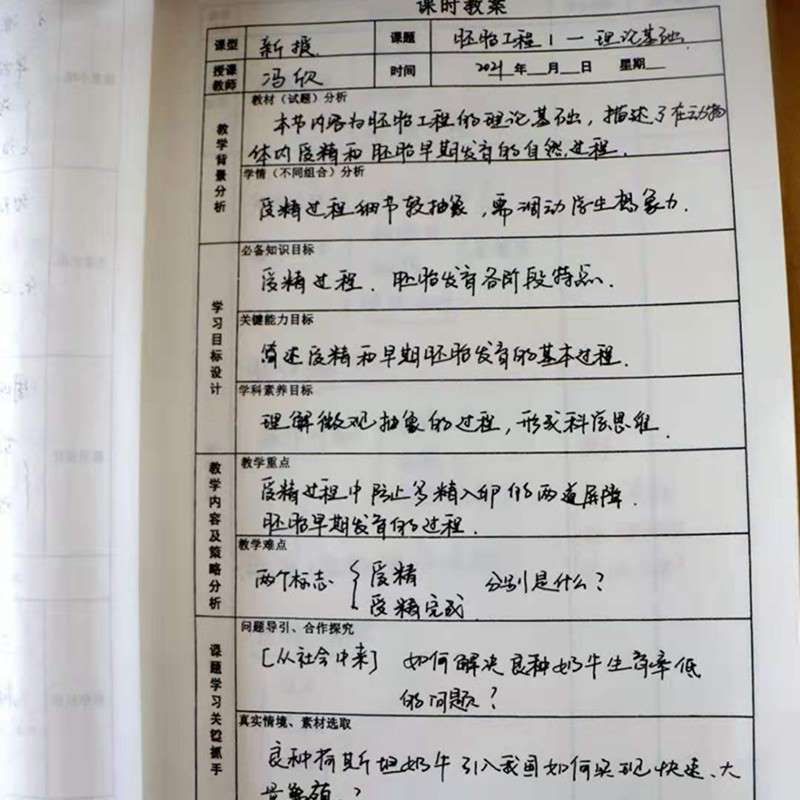 课时教案
课型 新授 课题 胚胎工程1—理论基础
授课教师 冯欣 时间 2021年__月__日 星期__
教学背景分析
教材（试题）分析
本节内容为胚胎工程的理论基础，描述了在动物
体内受精和胚胎早期发育的自然过程.
学情（不同组合）分析
受精过程细节较抽象，需调动学生想象力.
学习目标设计
必备知识目标
受精过程. 胚胎发育各阶段特点.
关键能力目标
简述受精和早期胚胎发育的基本过程.
学科素养目标
理解微观抽象的过程，形成科学思维.
教学内容及策略分析
教学重点
受精过程中防止多精入卵的两道屏障.
胚胎早期发育的过程.
教学难点
两个标志 { 受精 分别是什么？
受精完成
课题学习关键抓手
问题导引、合作探究
[从社会中来] 如何解决良种奶牛生育率低
的问题？
真实情境、素材选取
良种荷斯坦奶牛引入我国如何实现快速、大